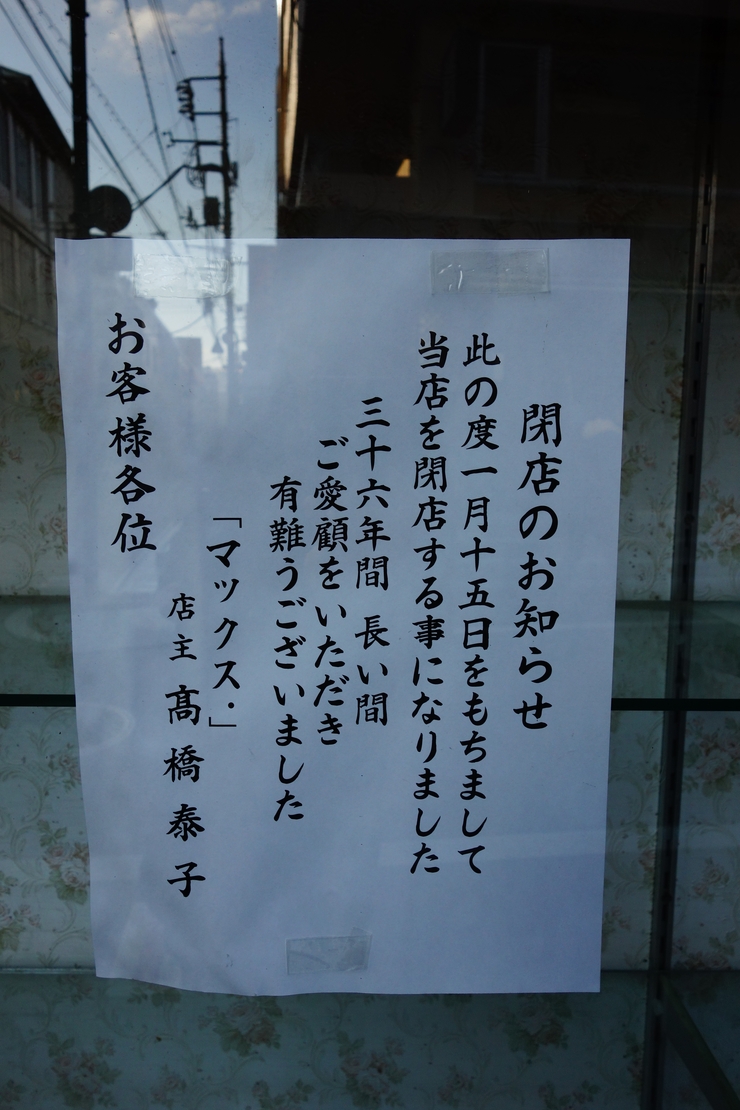 閉店のお知らせ
此の度一月十五日をもちまして
当店を閉店する事になりました
三十六年間 長い間
ご愛顧をいただき
有難うございました
「マックス・」
店主 髙橋泰子
お客様各位